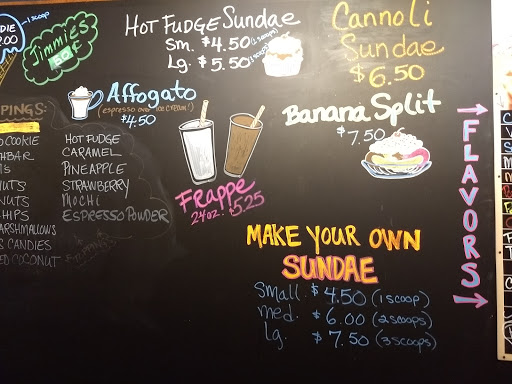 1 SCOOP
2.00
Jimmies
50¢
HOT FUDGE Sundae
Sm. $4.50 (1 scoop)
Lg. $5.50 (2 scoops)
Cannoli
Sundae
$6.50
Affogato
(espresso over ice cream!)
$4.50
Banana Split
$7.50
HOT FUDGE
CARAMEL
PINEAPPLE
STRAWBERRY
MOCHI
ESPRESSO POWDER
COOKIE
CANDIES
COCONUT
Frappe
24oz. $5.25
FLAVORS
MAKE YOUR OWN
SUNDAE
Small $4.50 (1 scoop)
med. $6.00 (2 scoops)
Lg. $7.50 (3 scoops)